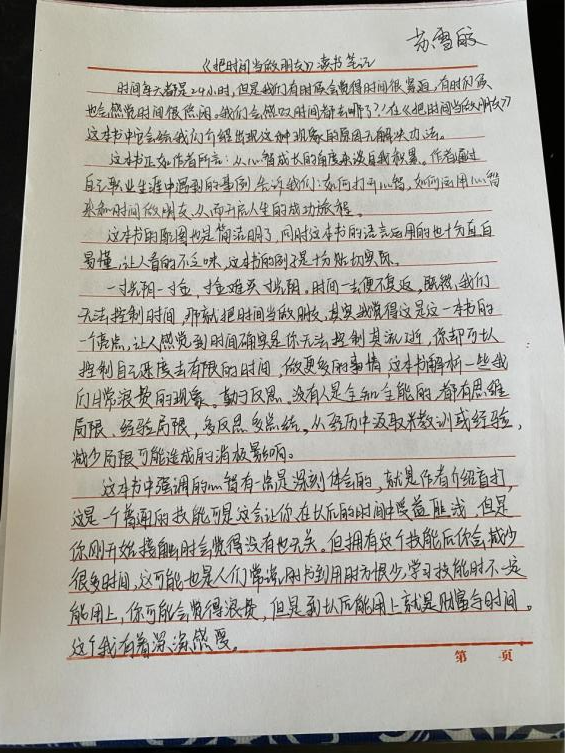 苏雪皎
《把时间当做朋友》读书笔记
时间每天都是24小时,但是我们有时候会觉得时间很紧迫,有时候
也会感觉时间很悠闲。我们会感叹时间都去哪了？！在《把时间当做朋友》
这本书中它会给我们介绍出现这种现象的原因及解决办法。
这本书正如作者所言：从心智成长的角度来谈自我积累。作者通过
自己职业生涯中遇到的事例告诉我们：如何打开心智，如何运用心智
来和时间做朋友，从而开启人生的成功旅程。
这本书的配图也是简洁明了，同时这本书的语言运用的也十分直白
易懂，让人看的不乏味，这本书的例子是十分贴切实际。
一寸光阴一寸金，寸金难买寸光阴。时间一去便不复返。既然，我们
无法控制时间，那就把时间当做朋友，其实我觉得这是这一本书的
一个亮点，让人感觉到时间确实是你无法控制其流逝，你却可以
控制自己速度去有限的时间，做更多的事情，这本书解析一些我
们日常浪费的现象。勤于反思，没有人是全知全能的，都有思维
局限、经验局限，多反思多总结。从经历中汲取来教训或经验，
减少局限可能造成的消极影响。
这本书中强调的心智有一点是深刻体会的，就是作者介绍盲打，
这是一个普通的技能可是这会让你在以后的时间中受益匪浅，但是
你刚开始接触时会觉得没有也无关。但拥有这个技能后你会减少
很多时间，这可能也是人们常说，刚书到用时方恨少，学习技能时不一定
能用上，你可能会觉得浪费，但是到以后能用上就是财富与时间。
这个我有着深深感受。
第 页